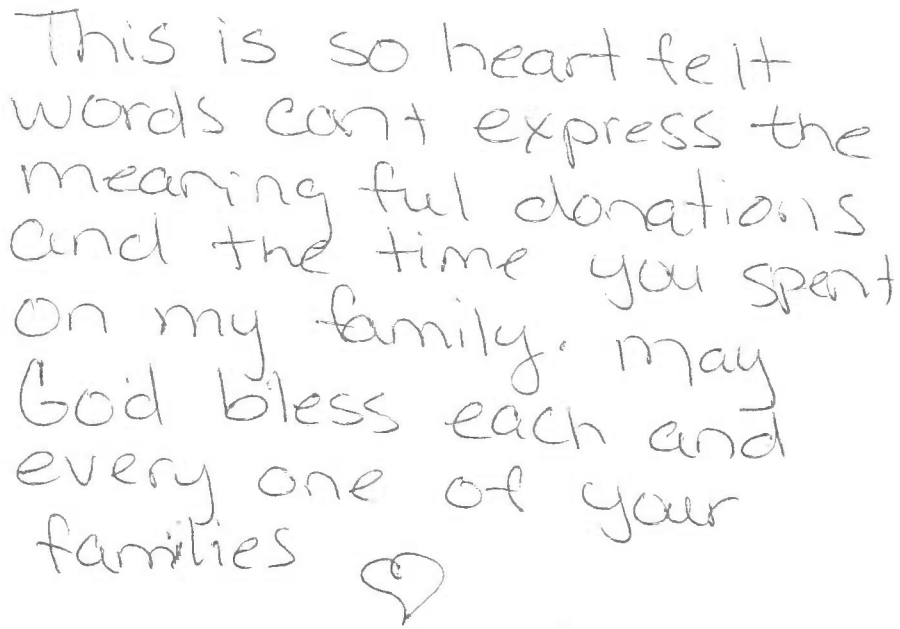 This is so heart felt
words can't express the
meaning ful donations
and the time you spent
on my family. May
God bless each and
every one of your
families ♡